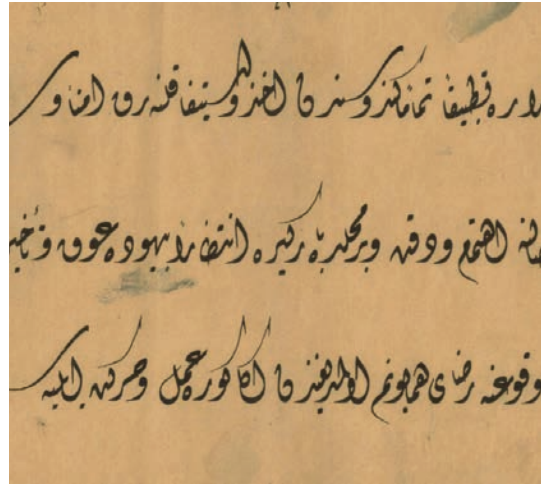 قراره تطبيقا تماما كندوسندن اخذ و استيفا قلنه‌رق امنا وى
اهتمام و دقت و بر محلده بر كيره انتظارا بيهوده عوق و تأخير
وقوعنه رضاى همايونم اولمديغندن اكا كوره عمل و حركت ايليه